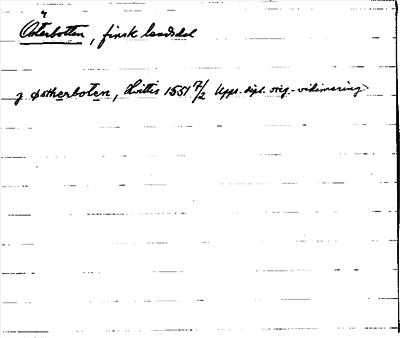 Österbotten, finsk landsdel
j østherboten, Kvittis 1551 7/2 Upps. dipl. orig.-vidimering